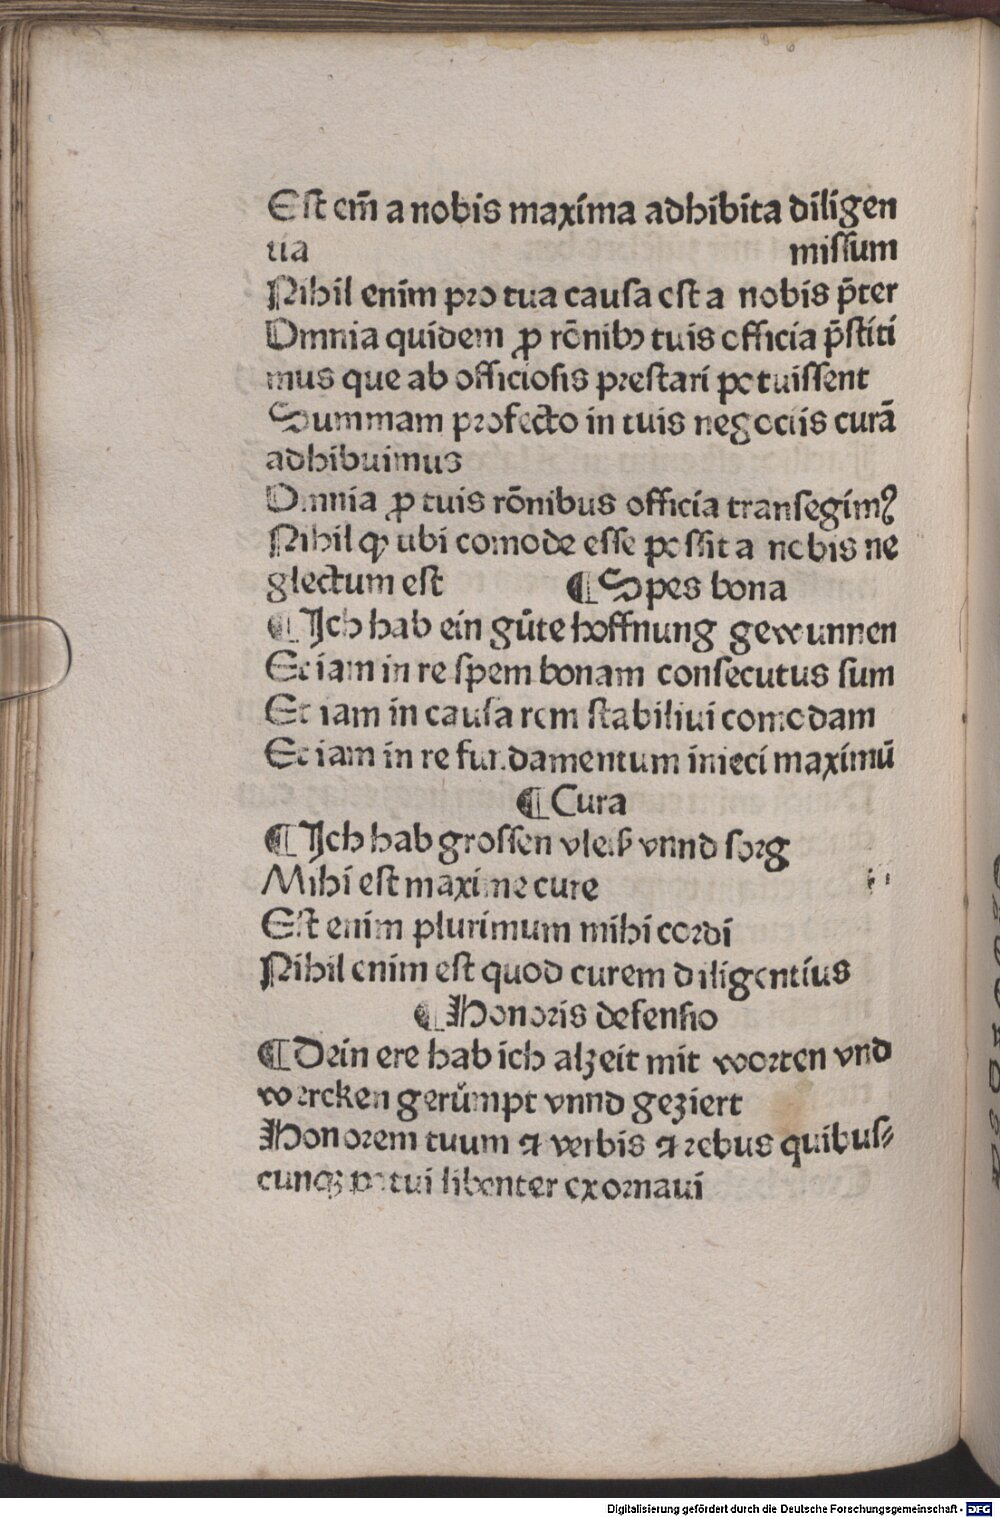 Eſt em̄ a nobis maxima adhibita diligen
tia missum
Nihil enim pro tua cauſa eſt a nobis p̄ter
Omnia quidem ꝓ rōnibꝰ tuis officia p̄ſtiti
mus que ab officioſis preſtari potuiſſent
Summam profecto in tuis negociis curā
adhibuimus
Omnia ꝓ tuis rōnibus officia tranſegimꝰ
Nihil ꝙ ubi comode eſſe poſſit a nobis ne
glectum eſt ¶ Spes bona
¶ Ich hab ein gůte hoffnung gewunnen
Etiam in re ſpem bonam conſecutus ſum
Etiam in cauſa rem ſtabiliui comodam
Etiam in re fundamentum inieci maximū
¶ Cura
¶ Ich hab groſſen vleiß vnnd ſorg
Mihi eſt maxime cure
Eſt enim plurimum mihi cordi
Nihil enim eſt quod curem diligentius
¶ Honoris defenſio
¶ Dein ere hab ich alzeit mit worten vnd
wercken gerůmpt vnnd geziert
Honorem tuum ⁊ verbis ⁊ rebus quibuſ⸗
cunqꝫ potui libenter exornaui
Digitalisierung gefördert durch die Deutsche Forschungsgemeinschaft - DFG